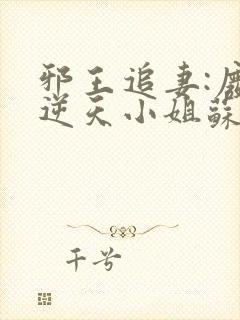 邪王追妻:廢
逆天小姐蘇
千兮